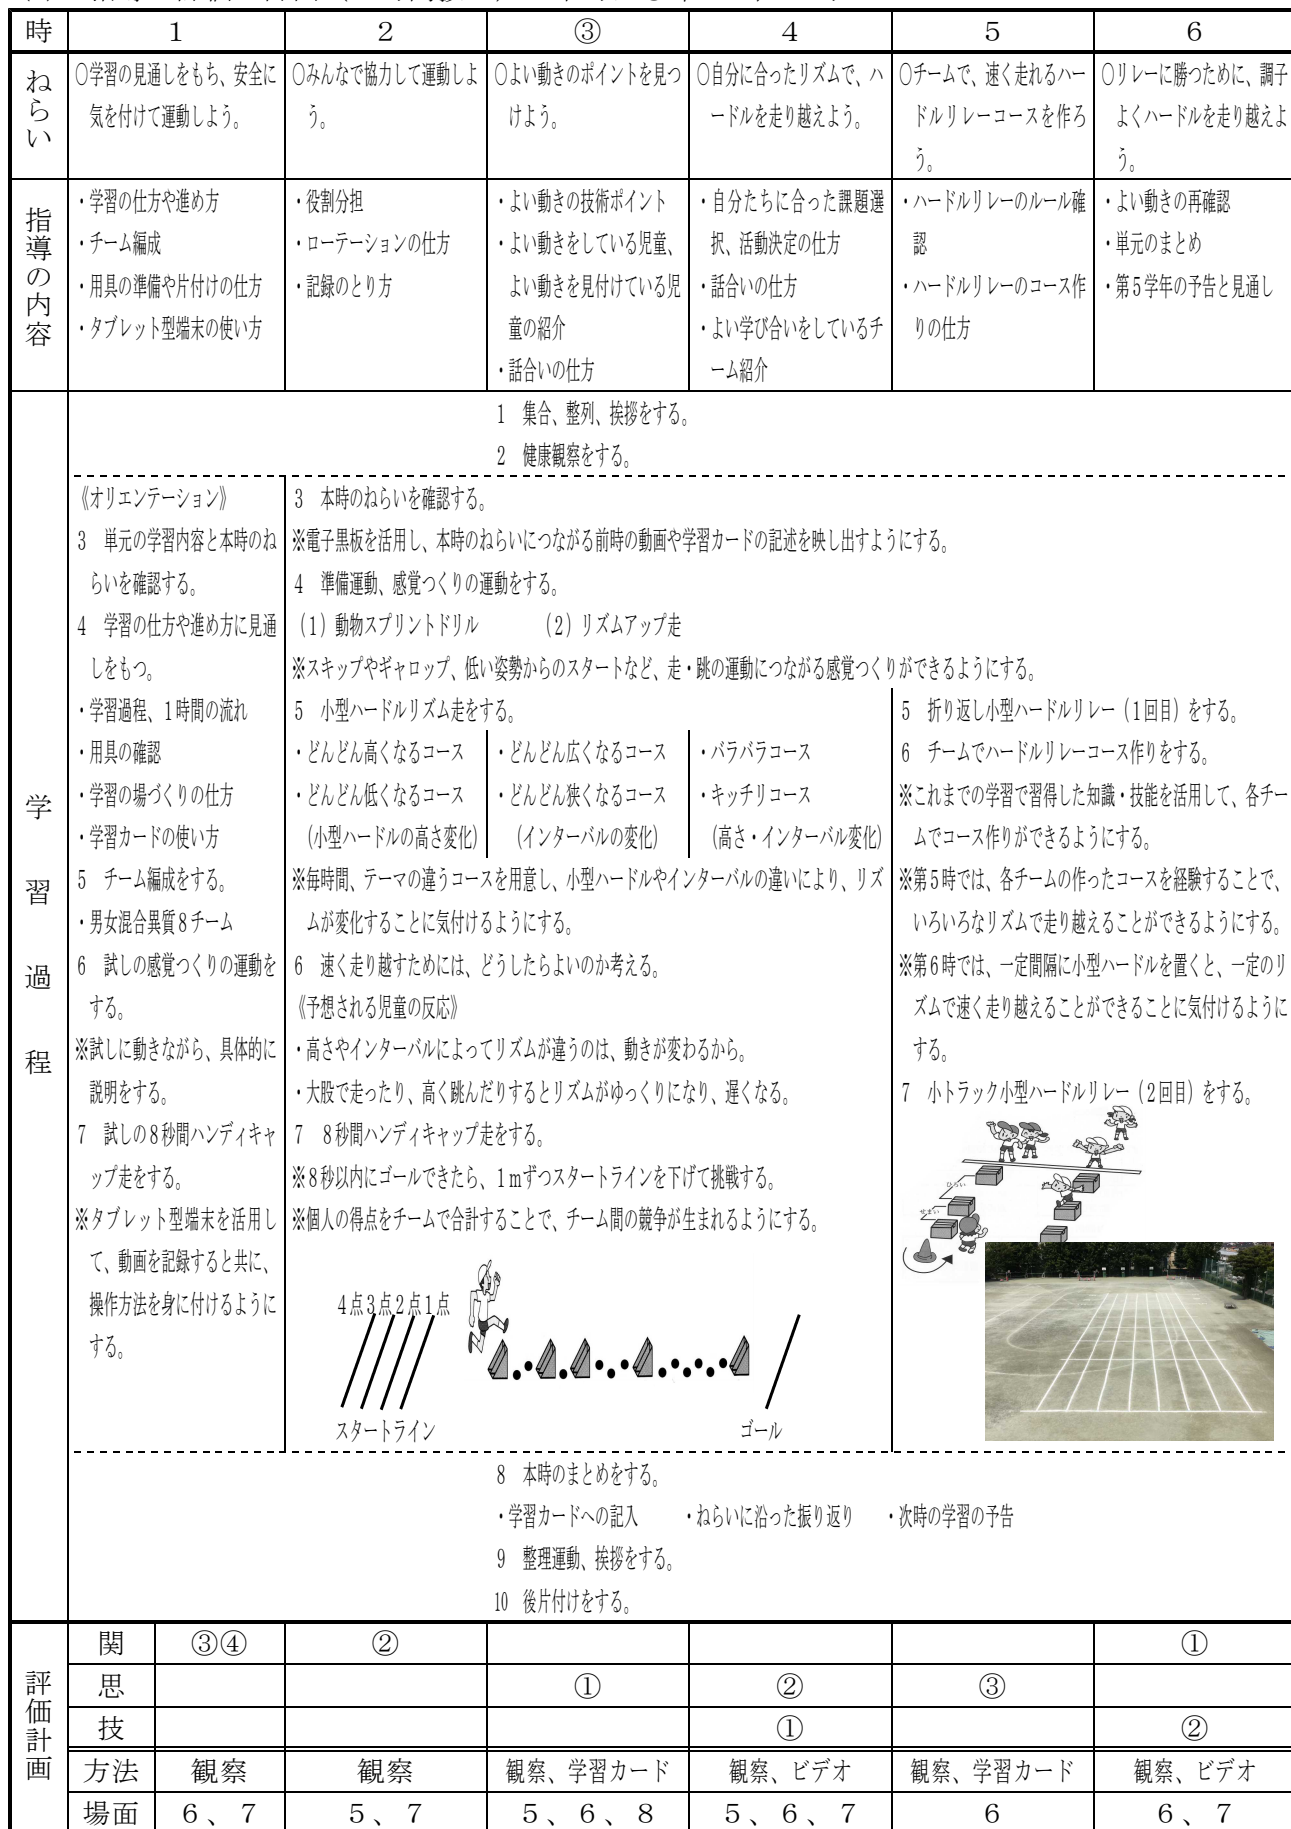 時 1 2 ③ 4 5 6
ねらい
○学習の見通しをもち、安全に
気を付けて運動しよう。
○みんなで協力して運動しよ
う。
○よい動きのポイントを見つ
けよう。
○自分に合ったリズムで、ハ
ードルを走り越えよう。
○チームで、速く走れるハー
ドルリレーコースを作ろ
う。
○リレーに勝つために、調子
よくハードルを走り越えよ
う。
指導の内容
・学習の仕方や進め方
・チーム編成
・用具の準備や片付けの仕方
・タブレット型端末の使い方
・役割分担
・ローテーションの仕方
・記録のとり方
・よい動きの技術ポイント
・よい動きをしている児童、
よい動きを見付けている児
童の紹介
・話合いの仕方
・自分たちに合った課題選
択、活動決定の仕方
・話合いの仕方
・よい学び合いをしているチ
ーム紹介
・ハードルリレーのルール確
認
・ハードルリレーのコース作
りの仕方
・よい動きの再確認
・単元のまとめ
・第5学年の予告と見通し
学習過程
1 集合、整列、挨拶をする。
2 健康観察をする。
《オリエンテーション》
3 単元の学習内容と本時のね
らいを確認する。
4 学習の仕方や進め方に見通
しをもつ。
・学習過程、1時間の流れ
・用具の確認
・学習の場づくりの仕方
・学習カードの使い方
5 チーム編成をする。
・男女混合異質8チーム
6 試しの感覚つくりの運動を
する。
※試しに動きながら、具体的に
説明をする。
7 試しの8秒間ハンディキャ
ップ走をする。
※タブレット型端末を活用し
て、動画を記録すると共に、
操作方法を身に付けるように
する。
3 本時のねらいを確認する。
※電子黒板を活用し、本時のねらいにつながる前時の動画や学習カードの記述を映し出すようにする。
4 準備運動、感覚つくりの運動をする。
(1) 動物スプリントドリル (2) リズムアップ走
※スキップやギャロップ、低い姿勢からのスタートなど、走・跳の運動につながる感覚つくりができるようにする。
5 小型ハードルリズム走をする。
・どんどん高くなるコース
・どんどん低くなるコース
(小型ハードルの高さ変化)
・どんどん広くなるコース
・どんどん狭くなるコース
(インターバルの変化)
・バラバラコース
・キッチリコース
(高さ・インターバル変化)
※毎時間、テーマの違うコースを用意し、小型ハードルやインターバルの違いにより、リズ
ムが変化することに気付けるようにする。
6 速く走り越すためには、どうしたらよいのか考える。
《予想される児童の反応》
・高さやインターバルによってリズムが違うのは、動きが変わるから。
・大股で走ったり、高く跳んだりするとリズムがゆっくりになり、遅くなる。
7 8秒間ハンディキャップ走をする。
※8秒以内にゴールできたら、1mずつスタートラインを下げて挑戦する。
※個人の得点をチームで合計することで、チーム間の競争が生まれるようにする。
4点3点2点1点
スタートライン
ゴール
5 折り返し小型ハードルリレー(1回目)をする。
6 チームでハードルリレーコース作りをする。
※これまでの学習で習得した知識・技能を活用して、各チー
ムでコース作りができるようにする。
※第5時では、各チームの作ったコースを経験することで、
いろいろなリズムで走り越えることができるようにする。
※第6時では、一定間隔に小型ハードルを置くと、一定のリ
ズムで速く走り越えることができることに気付けるように
する。
7 小トラック小型ハードルリレー(2回目)をする。
ひろい
せまい
8 本時のまとめをする。
・学習カードへの記入 ・ねらいに沿った振り返り ・次時の学習の予告
9 整理運動、挨拶をする。
10 後片付けをする。
評価計画
関 ③④ ② ①
思 ① ② ③
技 ① ②
方法 観察 観察 観察、学習カード 観察、ビデオ 観察、学習カード 観察、ビデオ
場面 6、7 5、7 5、6、8 5、6、7 6 6、7